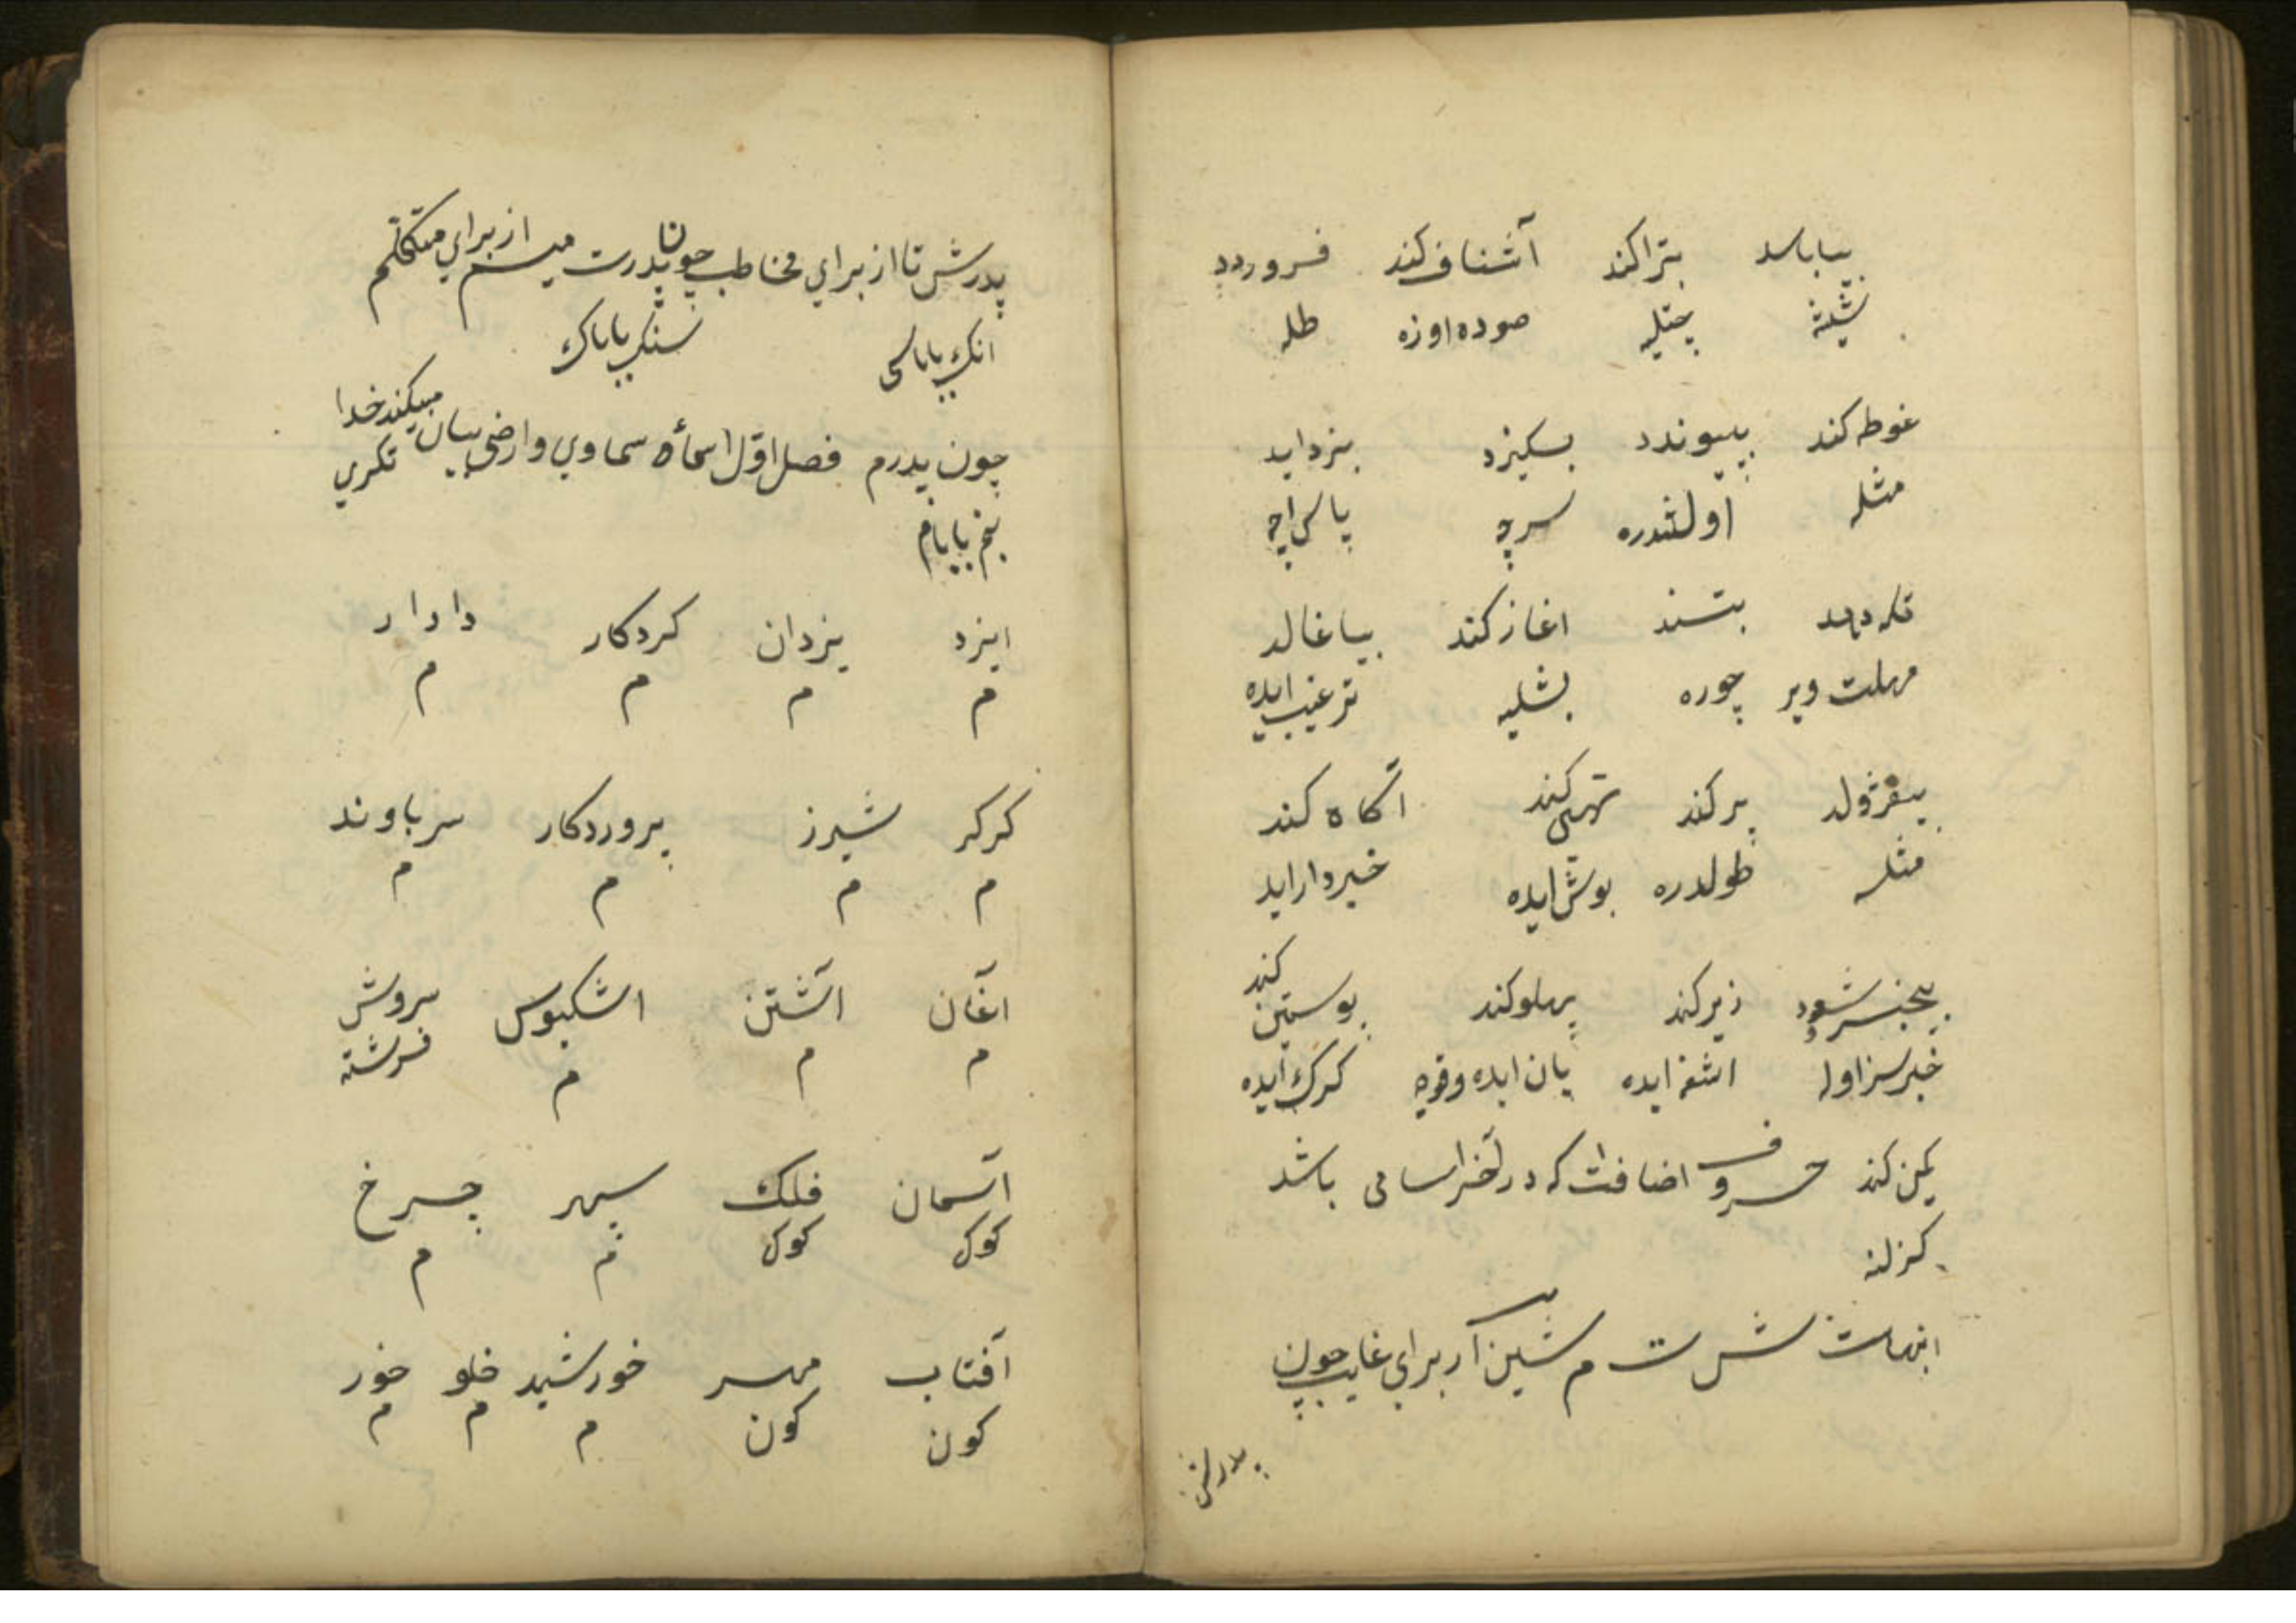 بیاباسد بتراکند آشناف کند فروردد
شیلیه چتیله صوده اوزه طله
غوطه کند بپیوندد بسکیزد بزداید
مثله اولشدره سرچه پاسی اچه
تکه دهد بتسند اغاز کند بیاغالد
مهلت ویر چوره بشلیه ترغیب ایده
بیفژولد پر کند تهی کند آگاه کند
مثله طولدره بوش ایده خبردار اید
بیخبر شود زیر کند پهلو کند پوستین کند
خبرسز اوله اشغه ایده یان ایده وقوجه کرک ایده
کمین کند حروف اضافت که در آخر اسامی باشد
کزلنه
اینهاست ش ت م شین از برای غایب چون
پدرش
پدرش تا از برای مخاطب چونان پدرت میم از برای متکلم
انک باباسی سنک باباک
چون پدرم فصل اول اسماء سماوی وارضی بیان میکند خدا
تکری
بنم بابام
ایزد یزدان کردکار دادار
م م م م
کرکر شیرز پروردکار سرباوند
م م م م
آغان آشتن اشکبوس سروش
م م م فرشته
آسمان فلک سپهر چرخ
کوک کوک م م
آفتاب مهر خورشید خلو خور
کون کون م م م